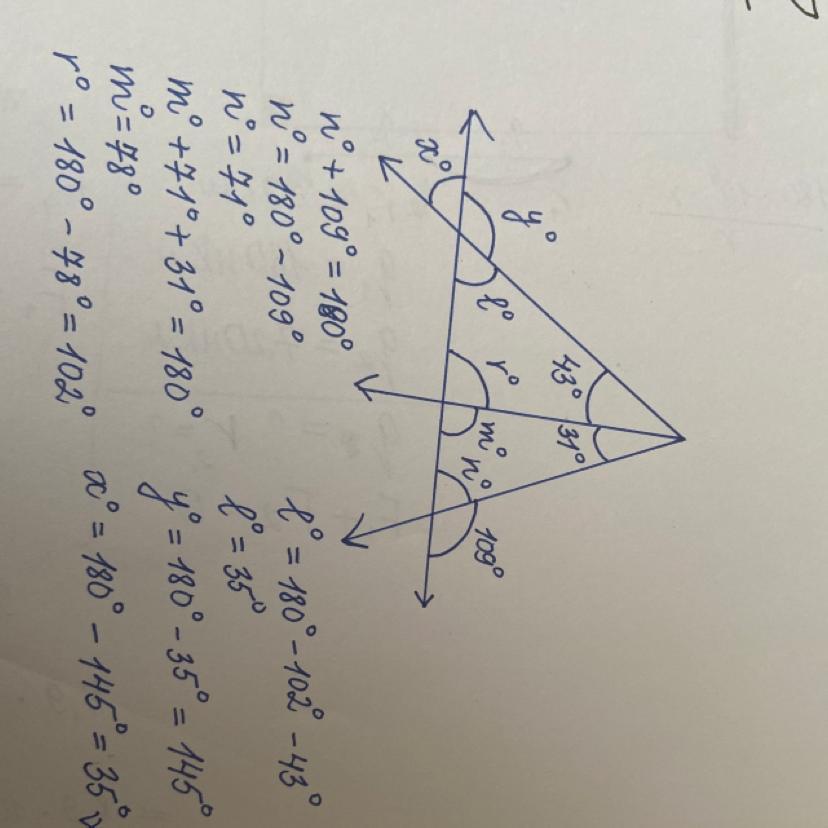 43°
31°
y°
x°
l°
r°
m°
n°
109°
n° + 109° = 180°
n° = 180° - 109°
n° = 71°
m° + 71° + 31° = 180°
m° = 78°
r° = 180° - 78° = 102°
l° = 180° - 102° - 43°
l° = 35°
y° = 180° - 35° = 145°
x° = 180° - 145° = 35°